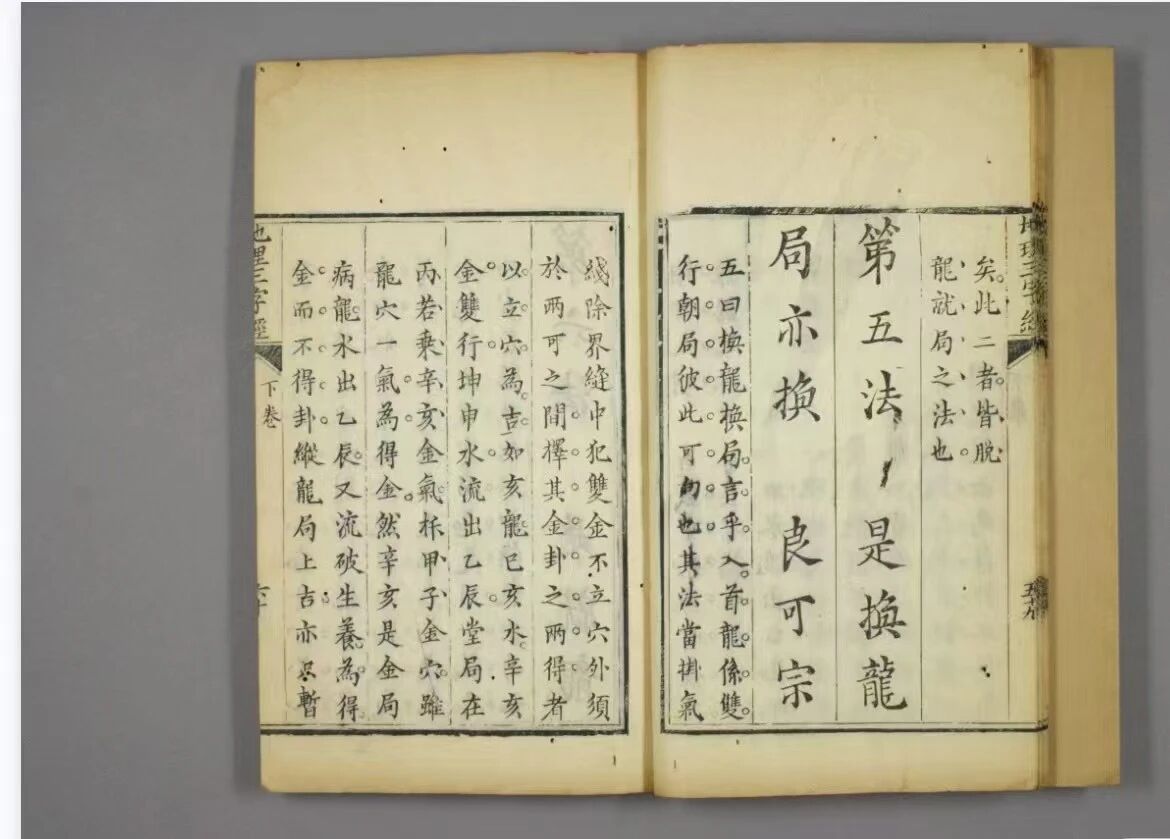 地理三字經
矣此二者皆脫
龍就局之法也
第五法 是換龍
局亦換 良可宗
五曰換龍換局言乎入首龍係雙
行朝局彼此可勾也其法當掛氣
綫除界縫中犯雙金不立穴外須
於兩可之間擇其金卦之兩得者
以立穴為吉如亥龍巳亥水辛亥
金雙行坤申水流出乙辰堂局在
丙若乘辛亥金氣柝甲子金穴雖
龍穴一氣為得金然辛亥是金局
病龍水出乙辰又流破生養為得
金而不得卦縱龍局上吉亦只暫
地理三字經
下卷